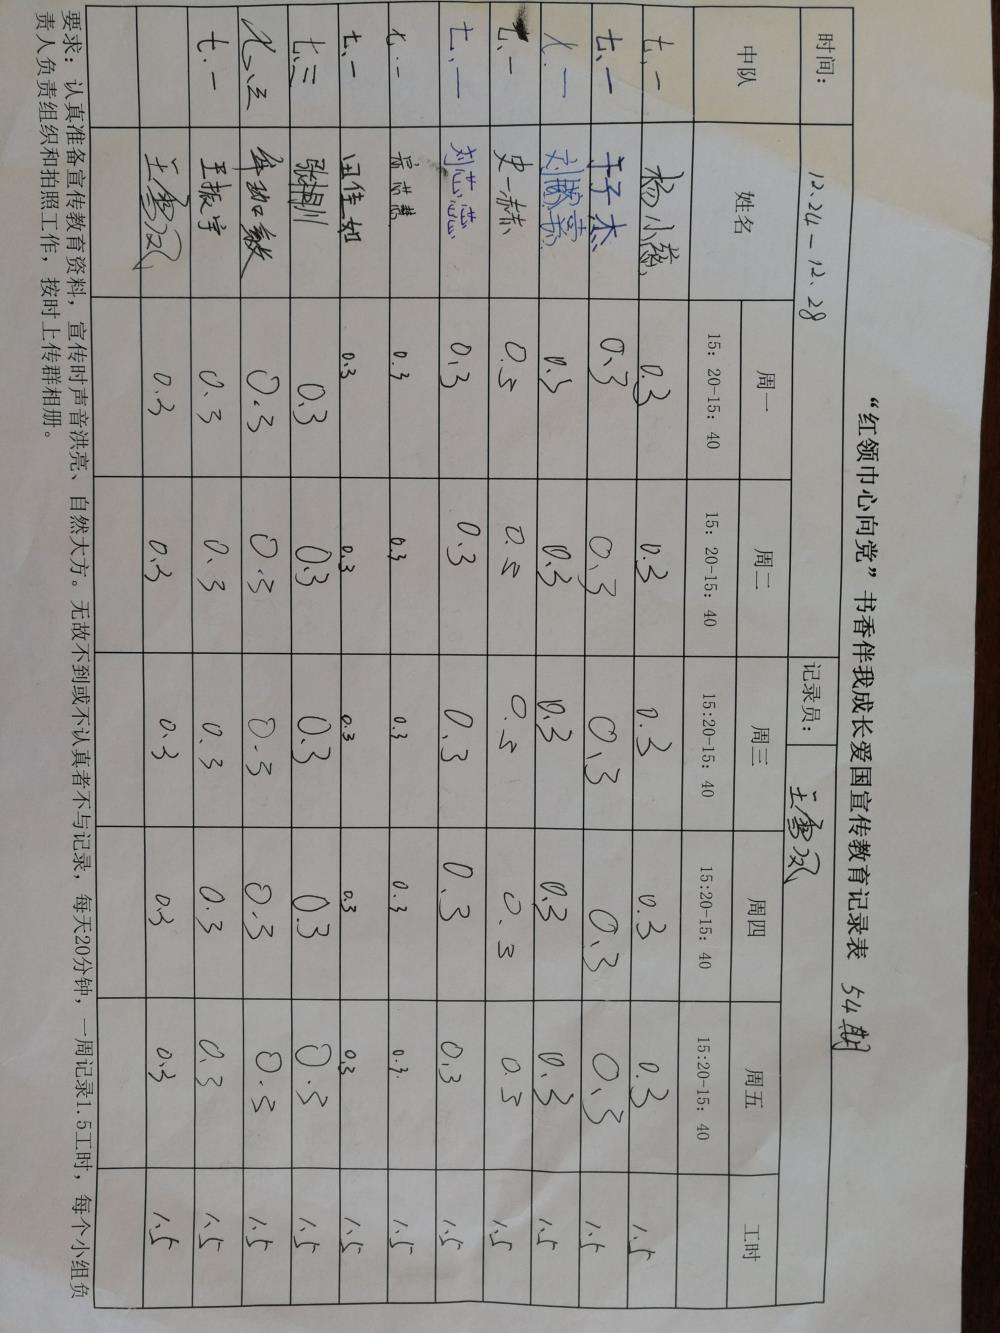 “红领巾心向党”书香伴我成长爱国宣传教育记录表 54期
时间: 12.24-12.28 记录员: 王雪凤
中队 姓名 周一 周二 周三 周四 周五 工时
15: 20-15: 40 15: 20-15: 40 15:20-15: 40 15:20-15: 40 15:20-15: 40
七、一 杨小 0.3 0.3 0.3 0.3 0.3 1.5
七、一 于子杰 0.3 0.3 0.3 0.3 0.3 1.5
七、一 刘 0.3 0.3 0.3 0.3 0.3 1.5
七、一 史一赫 0.3 0.3 0.3 0.3 0.3 1.5
七、一 刘芯蕊 0.3 0.3 0.3 0.3 0.3 1.5
七.一 0.3 0.3 0.3 0.3 0.3 1.5
七.一 田佳如 0.3 0.3 0.3 0.3 0.3 1.5
七.三 张 0.3 0.3 0.3 0.3 0.3 1.5
七.三 0.3 0.3 0.3 0.3 0.3 1.5
七.一 王振宇 0.3 0.3 0.3 0.3 0.3 1.5
王雪凤 0.3 0.3 0.3 0.3 0.3 1.5
要求: 认真准备宣传教育资料, 宣传时声音洪亮、自然大方。无故不到或不认真者不与记录, 每天20分钟, 一周记录1.5工时, 每个小组负
责人负责组织和拍照工作, 按时上传群相册。